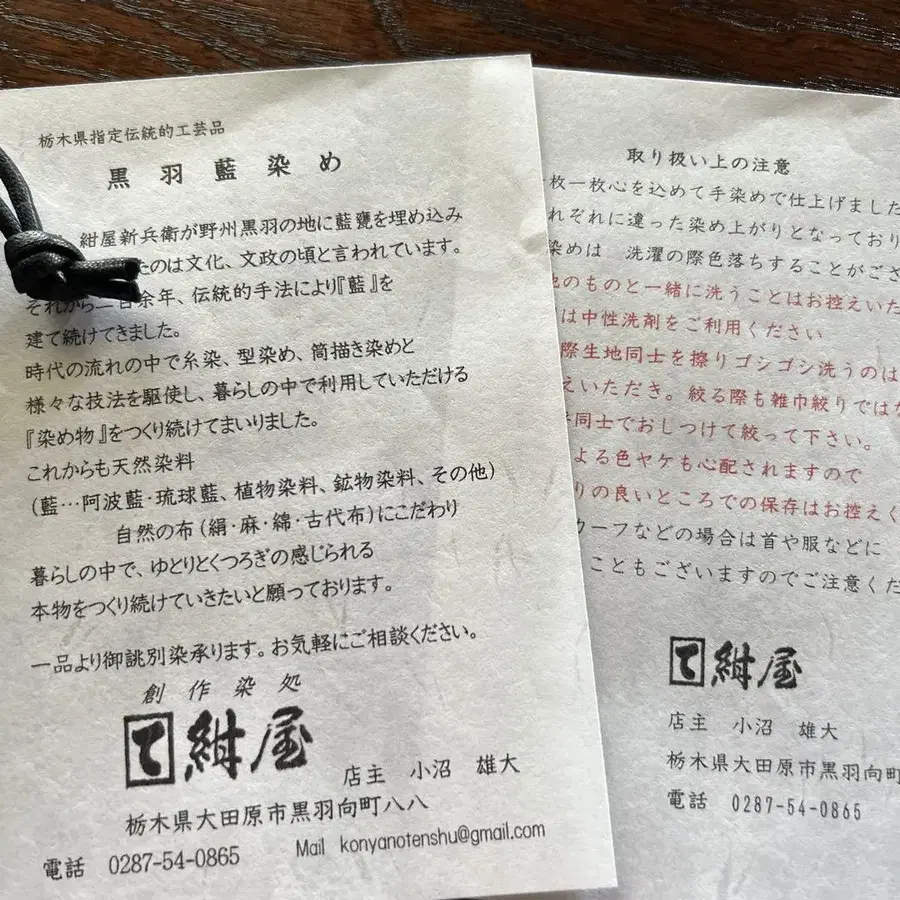 栃木県指定伝統的工芸品
黒羽藍染め
紺屋新兵衛が野州黒羽の地に藍甕を埋め込み
たのは文化、文政の頃と言われています。
それから二百余年、伝統的手法により『藍』を
建て続けてきました。
時代の流れの中で糸染、型染め、筒描き染めと
様々な技法を駆使し、暮らしの中で利用していただける
『染め物』をつくり続けてまいりました。
これからも天然染料
(藍…阿波藍・琉球藍、植物染料、鉱物染料、その他)
自然の布(絹・麻・綿・古代布)にこだわり
暮らしの中で、ゆとりとくつろぎの感じられる
本物をつくり続けていきたいと願っております。
一品より御誂別染承ります。お気軽にご相談ください。
創作染処
て紺屋
店主 小沼 雄大
栃木県大田原市黒羽向町八八
電話 0287-54-0865 Mail konyanotenshu@gmail.com
取り扱い上の注意
枚一枚心を込めて手染めで仕上げました
れぞれに違った染め上がりとなっており
染めは 洗濯の際色落ちすることがござ
他のものと一緒に洗うことはお控えいた
は中性洗剤をご利用ください
際生地同士を擦りゴシゴシ洗うのは
えいただき。絞る際も雑巾絞りではな
同士でおしつけて絞って下さい。
よる色ヤケも心配されますので
りの良いところでの保存はお控えく
カーフなどの場合は首や服などに
こともございますのでご注意くだ
て紺屋
店主 小沼 雄大
栃木県大田原市黒羽向町
電話 0287-54-0865